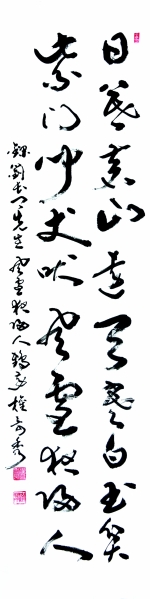 日暮蒼山遠天寒白屋貧
柴門聞犬吠風雪夜歸人
錄劉先生風雪夜歸人